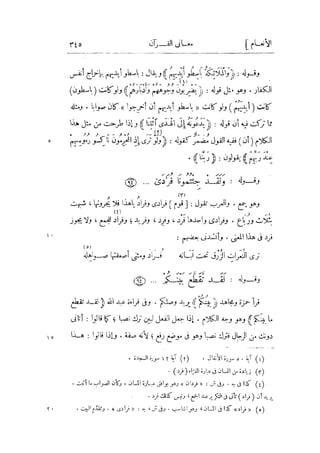 [الأنعام معانى القـــرآن ٣٤٥
وقـوله : ﴿وَالْمَلَائِكَةُ بَاسِطُو أَيْدِيهِمْ﴾ ويقال : باسطو أيديهم بإخراج أنفس
الكفار . وهو مثل قوله : ﴿يَضْرِبُونَ وُجُوهَهُمْ وَأَدْبَارَهُمْ﴾ ولو كانت (باسطون)
كانت (أيديهم) ولو كانت « باسطو أيديهم أن أخرجوا » كان صوابا . ومثله
مما تركت فيه أن قوله : ﴿يَدْعُونَهُ إِلَى الْهُدَى ائْتِنَا﴾ وإذا طرحت من مثل هذا
الكلام (أن) ففيه القول مضمر كقوله : ﴿وَلَوْ تَرَى إِذِ الْمُجْرِمُونَ نَاكِسُو رُءُوسِهِمْ ٥
عِنْدَ رَبِّهِمْ﴾ يقولون : ﴿رَبَّنَا﴾ .
وقـــوله : وَلَقَـــدْ جِئْتُمُونَا فُرَادَى ... (٩٤)
وهو جمع . والعرب تقول : (قوم) فرادى وفراد يا هذا فلا يجرونها ، شبهت
بثلاث ورباع . وفرادى واحدها فَرْد ، وفَرِد ، وفريد ، وفراد للجمع ، ولا يجوز
فرد فى هذا المعنى . وأنشدنى بعضهم : ١٠
ترى النعرات الزرق تحت لبانه فـراد ومثنى أصعقتها صـواهله
وقـــوله : لَقَـــد تَقَطَّعَ بَيْنَكُـــمْ ... (٩٤)
قرأ حمزة ومجاهد ﴿بَيْنُكُمْ﴾ يريد وصلكم . وفى قراءة عبد الله ﴿لقد تقطع
ما بينكم﴾ وهو وجه الكلام . إذا جعل الفعل لبين ترك نصبا ؛ كما قالوا : أتانى
دونك من الرجال فترك نصبا وهو فى موضع رفع ؛ لأنه صفة . وإذا قالوا : هــذا ١٥
(١) آية ٥٠ سورة الأنفال . (٢) آية ١٢ سورة السجدة .
(٣) زيادة من اللسان فى مادة (فرد) .
(٤) كذا فى ج . وفى ش :
(٥)